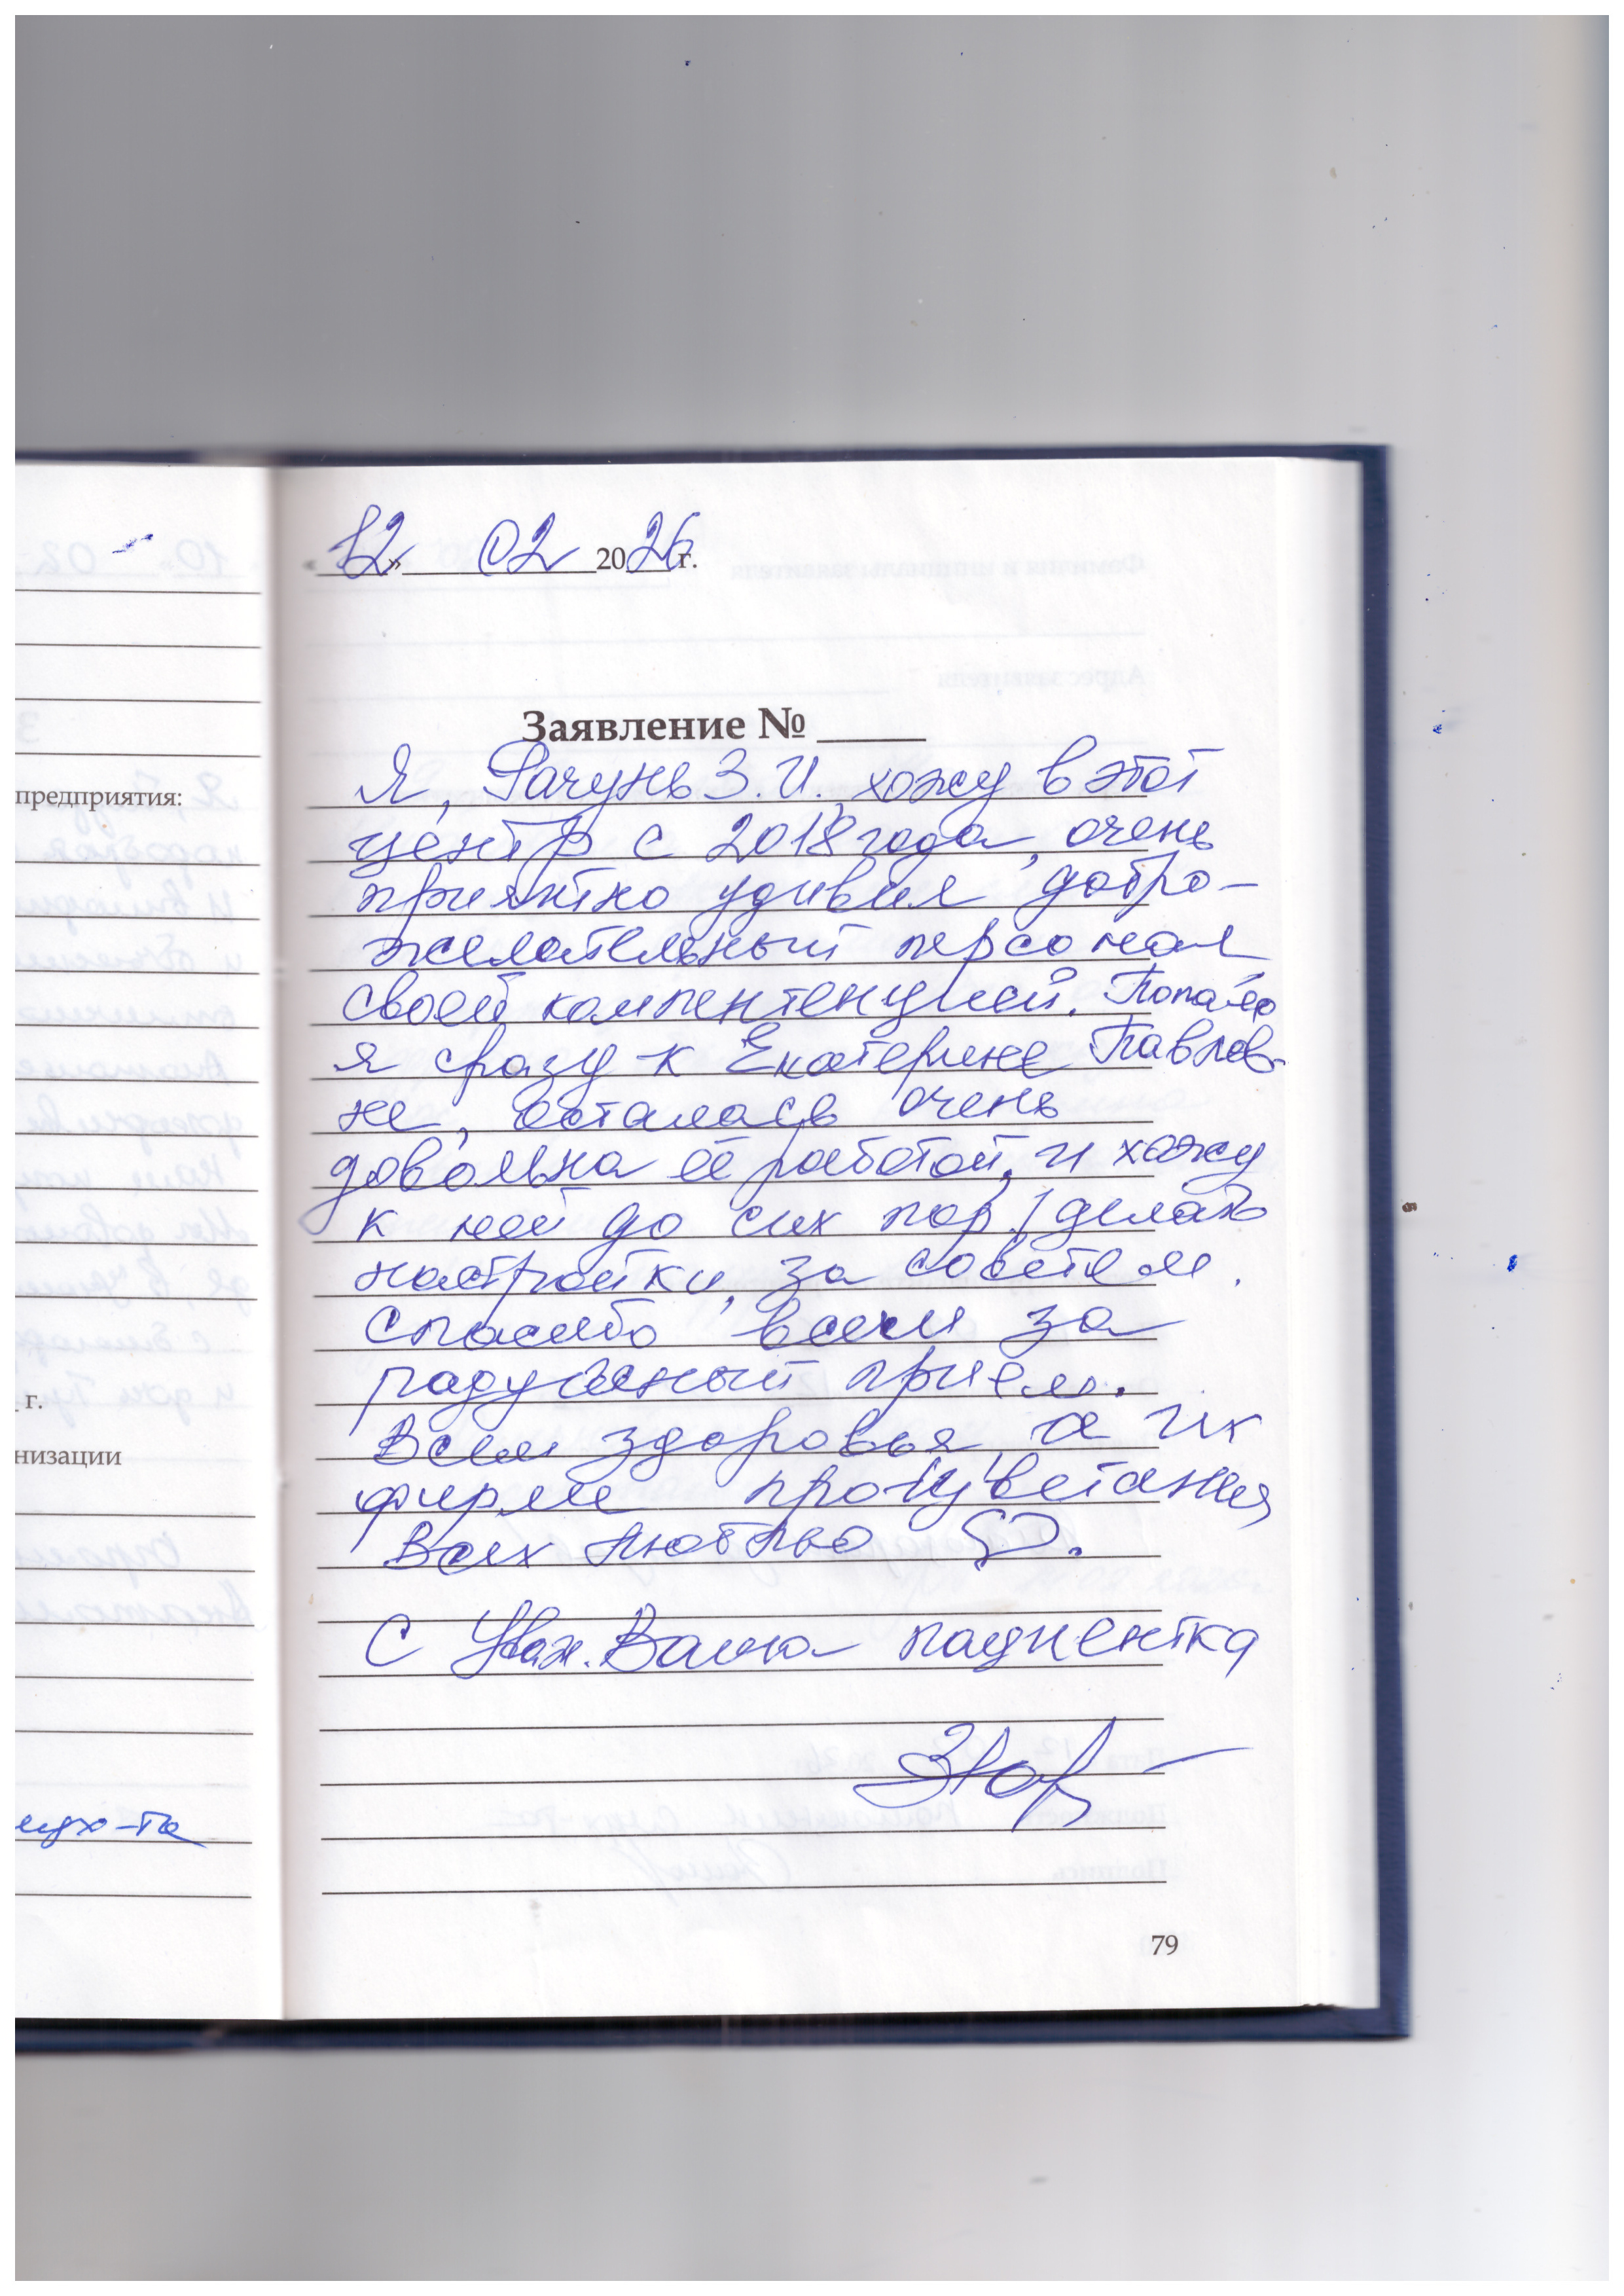 «12» 02 2026 г.
Заявление № ____
Я, Рачунь З.И., хожу в этот
центр с 2018 года, очень
приятно удивил добро-
желательный персонал
своей компентенцией. Попала
я сразу к Екатерине Павлов-
не, осталась очень
довольна её работой, и хожу
к ней до сих пор, делать
настройки, за советом.
Спасибо всем за
радушный приём.
Всем здоровья, а их
фирме процветания
Всех люблю
С Уваж. Ваша пациентка
79
предприятия:
г.
низации